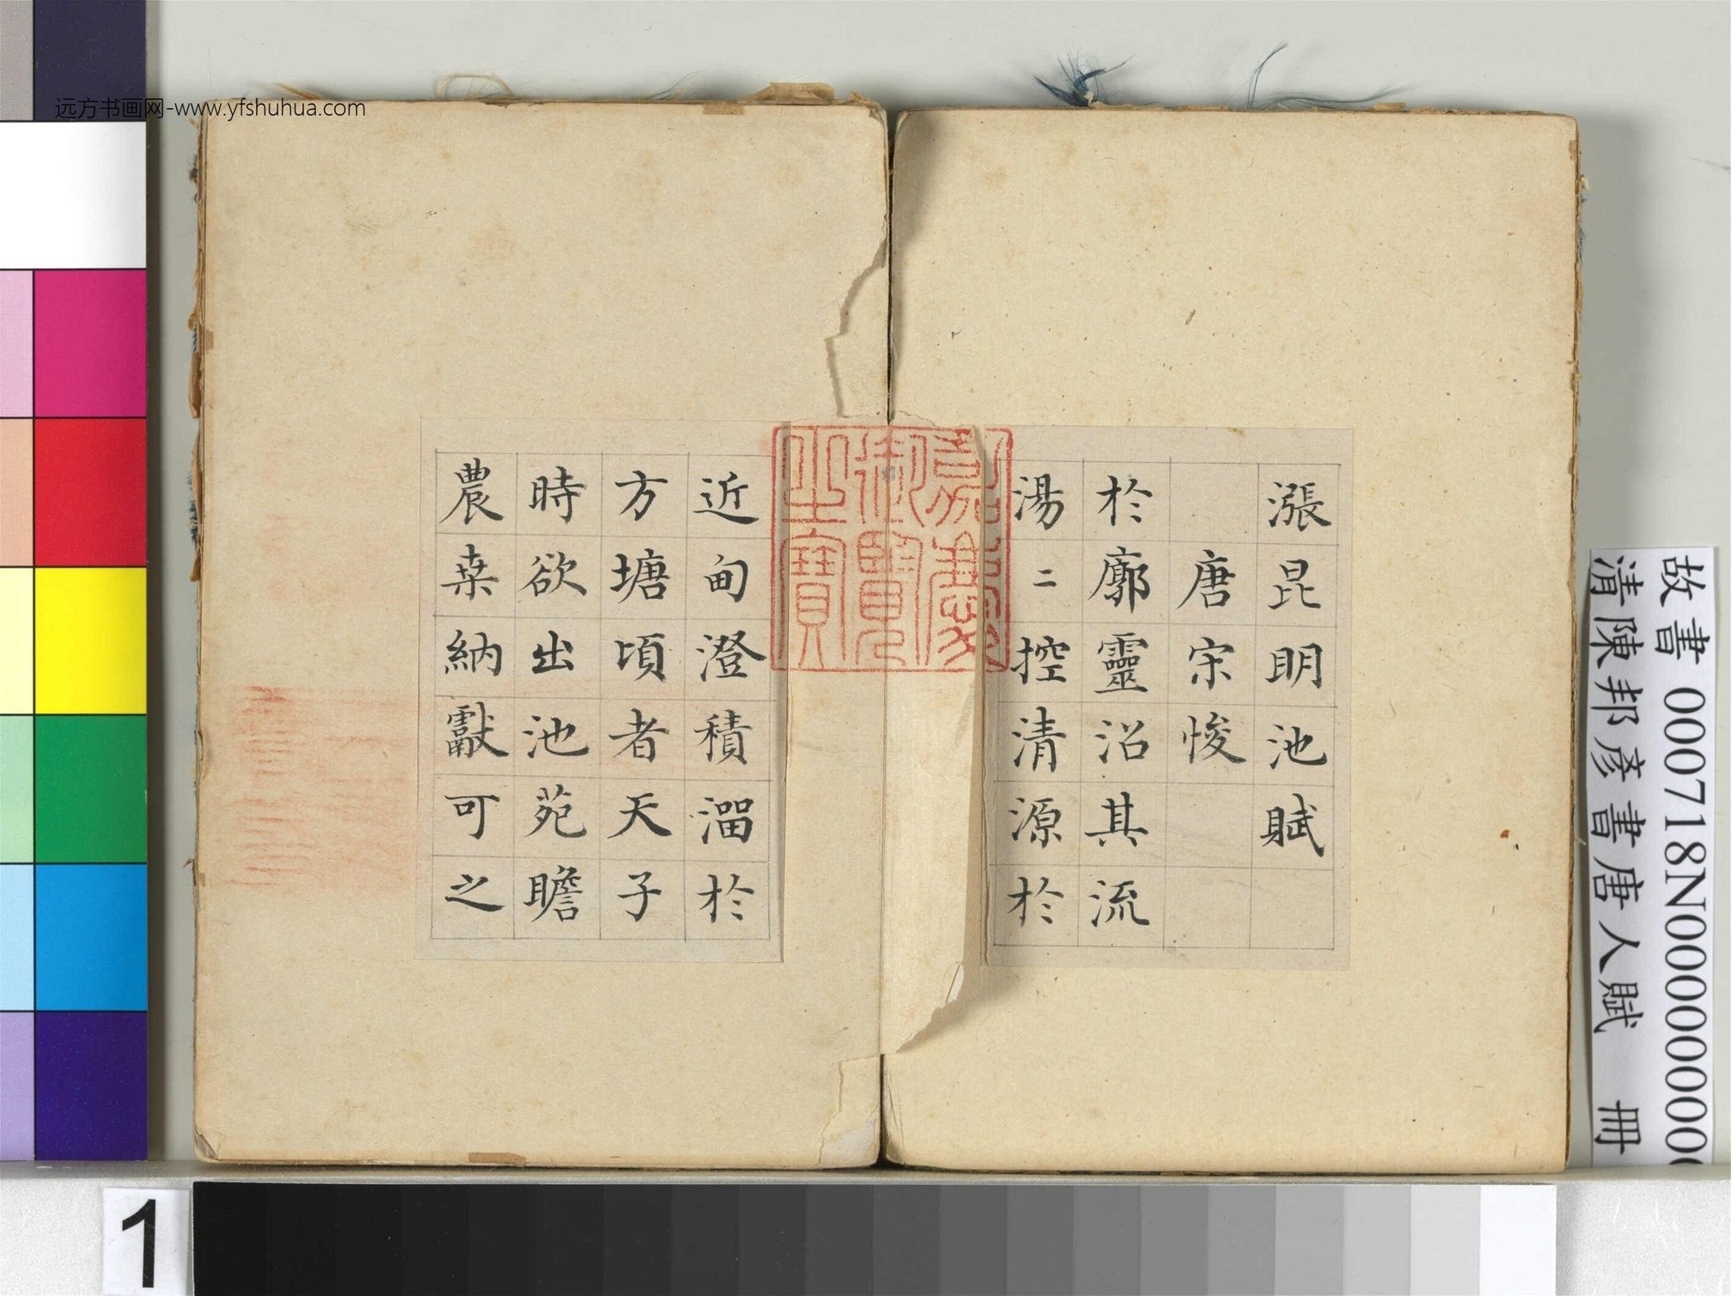 远方书画网-www.yfshuhua.com
漲昆明池賦
唐宋悛
於廓靈沼其流
湯二控清源於
近甸澄積溜於
方塘頃者天子
時欲出池苑瞻
農桒納獻可之
嘉慶
御覽
之寶
清陳邦彥書唐人賦 冊
1